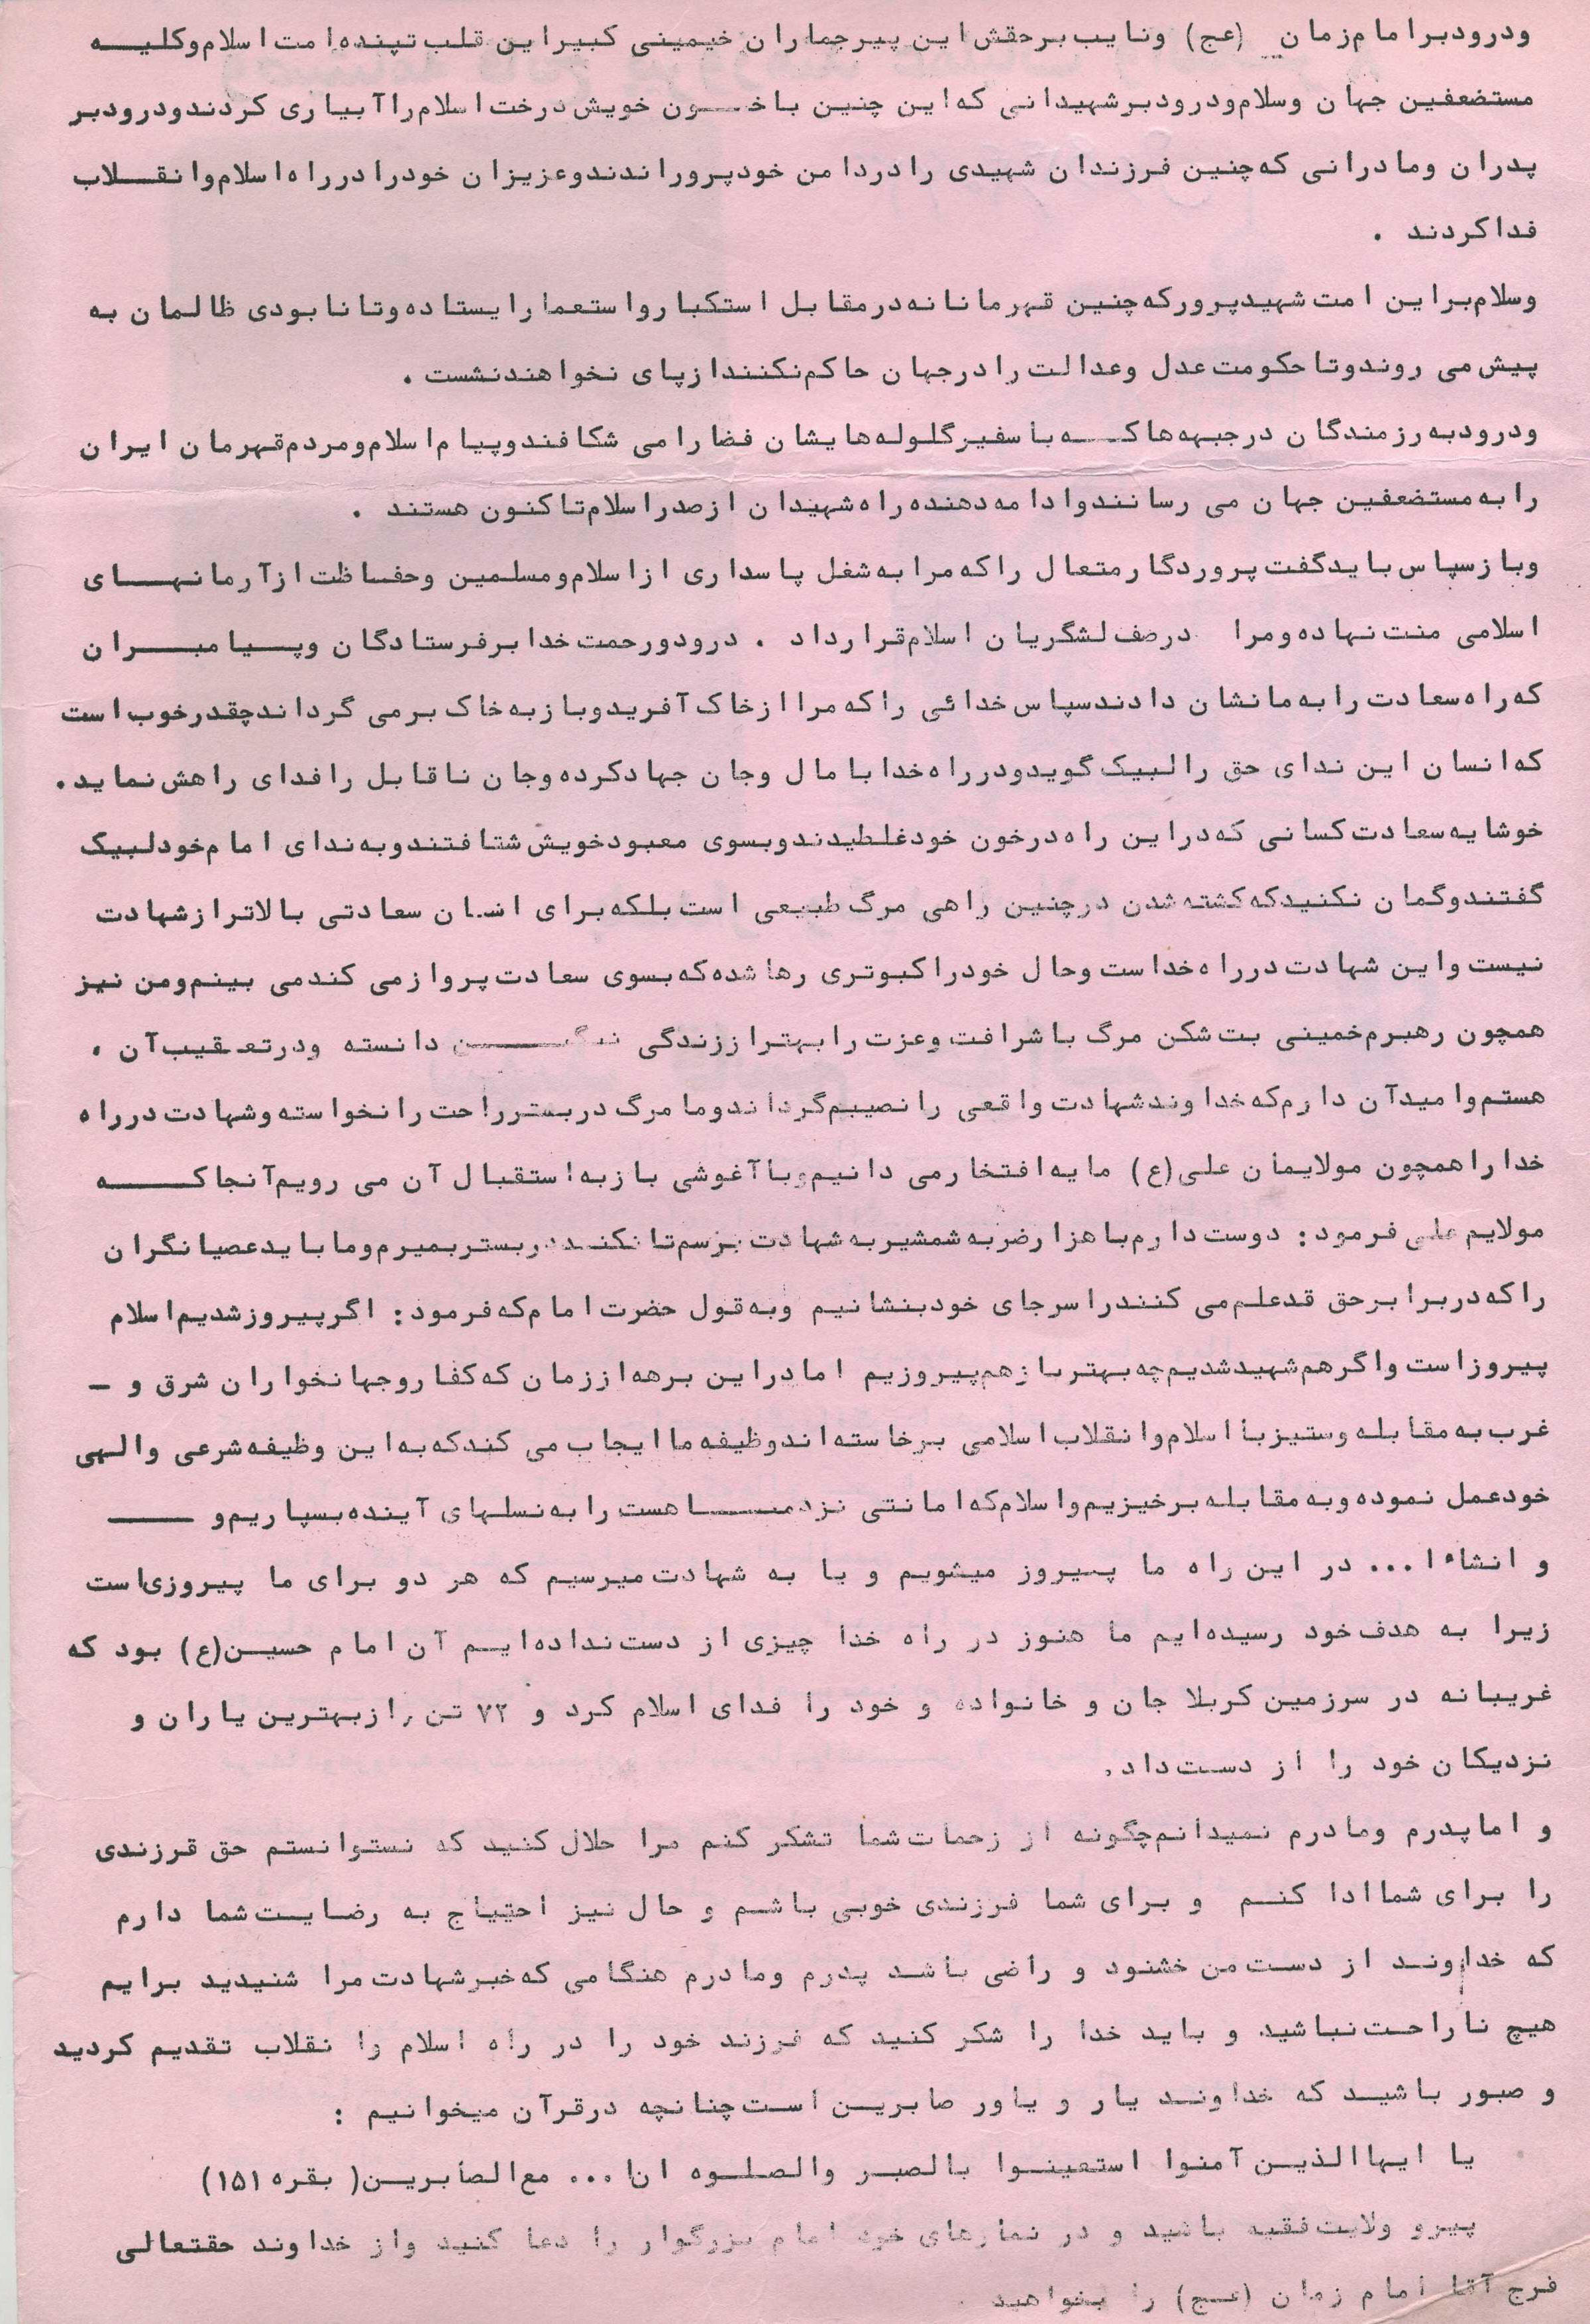 ودرود بر امام زمان (عج) ونایب برحقش این پیرجماران خیمینی کبیر این قلب تپنده امت اسلام وکلیه
مستضعفین جهان وسلام ودرود بر شهیدانی که این چنین با خون خویش درخت اسلام را آبیاری کردند ودرود بر
پدران ومادرانی که چنین فرزندان شهیدی را در دامن خود پروراندند وعزیزان خود را در راه اسلام وانقلاب
فدا کردند .
وسلام بر این امت شهید پرور که چنین قهرمانانه در مقابل استکبار واستعمار ایستاده وتا نابودی ظالمان به
پیش می روند وتا حکومت عدل وعدالت را در جهان حاکم نکنند از پای نخواهند نشست .
ودرود به رزمندگان در جبهه ها که با سفیر گلوله هایشان فضا را می شکافند وپیام اسلام ومردم قهرمان ایران
را به مستضعفین جهان می رسانند وادامه دهنده راه شهیدان از صدر اسلام تا کنون هستند .
وباز سپاس باید گفت پروردگار متعال را که مرا به شغل پاسداری از اسلام ومسلمین وحفاظت از آرمانهای
اسلامی منت نهاده ومرا در صف لشگریان اسلام قرار داد . درود ورحمت خدا بر فرستادگان وپیامبران
که راه سعادت را به ما نشان دادند سپاس خدائی را که مرا از خاک آفرید وباز به خاک بر می گرداند چقدر خوب است
که انسان این ندای حق را لبیک گوید ودر راه خدا با مال وجان جهاد کرده وجان ناقابل را فدای راهش نماید .
خوشا به سعادت کسانی که در این راه در خون خود غلطیدند وبسوی معبود خویش شتافتند وبه ندای امام خود لبیک
گفتند وگمان نکنید که کشته شدن در چنین راهی مرگ طبیعی است بلکه برای انسان سعادتی بالاتر از شهادت
نیست واین شهادت در راه خداست وحال خود را کبوتری رها شده که بسوی سعادت پرواز می کند می بینم ومن نیز
همچون رهبرم خمینی بت شکن مرگ با شرافت وعزت را بهتر از زندگی ننگین دانسته ودر تعقیب آن .
هستم وامید آن دارم که خداوند شهادت واقعی را نصیبم گرداند وما مرگ در بستر راحت را نخواسته وشهادت در راه
خدا را همچون مولایمان علی (ع) مایه افتخار می دانیم وبا آغوشی باز به استقبال آن می رویم آنجا که
مولایم علی فرمود : دوست دارم با هزار ضربه شمشیر به شهادت برسم تا نکند در بستر بمیرم وما باید عصیانگران
را که در برابر حق قد علم می کنند را سر جای خود بنشانیم وبه قول حضرت امام که فرمود : اگر پیروز شدیم اسلام
پیروز است واگر هم شهید شدیم چه بهتر باز هم پیروزیم اما در این برهه از زمان که کفار وجهانخواران شرق و -
غرب به مقابله وستیز با اسلام وانقلاب اسلامی برخاسته اند وظیفه ما ایجاب می کند که به این وظیفه شرعی والهی
خود عمل نموده وبه مقابله برخیزیم واسلام که امانتی نزد ما هست را به نسلهای آینده بسپاریم و ـــــ
و انشاء ا... در این راه ما پیروز میشویم و یا به شهادت میرسیم که هر دو برای ما پیروزی است
زیرا به هدف خود رسیده ایم ما هنوز در راه خدا چیزی از دست نداده ایم آن امام حسین (ع) بود که
غریبانه در سرزمین کربلا جان و خانواده و خود را فدای اسلام کرد و ۷۲ تن از بهترین یاران و
نزدیکان خود را از دست داد .
و اما پدرم ومادرم نمیدانم چگونه از زحمات شما تشکر کنم مرا حلال کنید که نستوانستم حق قرزندی
را برای شما ادا کنم و برای شما فرزندی خوبی باشم و حال نیز احتیاج به رضایت شما دارم
که خداوند از دست من خشنود و راضی باشد پدرم ومادرم هنگامی که خبر شهادت مرا شنیدید برایم
هیچ ناراحت نباشید و باید خدا را شکر کنید که فرزند خود را در راه اسلام وا نقلاب تقدیم کردید
و صبور باشید که خداوند یار و یاور صابرین است چنانچه در قرآن میخوانیم :
یا ایها الذین آمنوا استعینوا بالصبر والصلوه ان ا... مع الصابرین ( بقره ۱۵۱)
پیرو ولایت فقیه باشید و در نمازهای خود امام بزرگوار را دعا کنید واز خداوند حقتعالی
فرج آقا امام زمان (عج) را بخواهید .